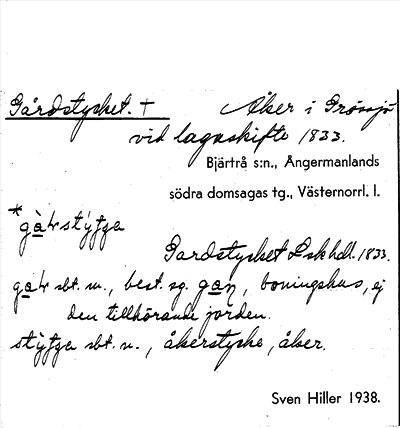 Gårdstycket. +
Åker i Grössjö
vid lagaskifte 1833.
Bjärtrå s:n., Ångermanlands
södra domsagas tg., Västernorrl. l.
*gàɽstýʈʂa
Gardstycket Lskhdl. 1833.
gaɽ sbt. m., best. sg. gaṇ, boningshus, ej
den tillhörande jorden.
stýʈʂa sbt. n., åkerstycke, åker.
Sven Hiller 1938.